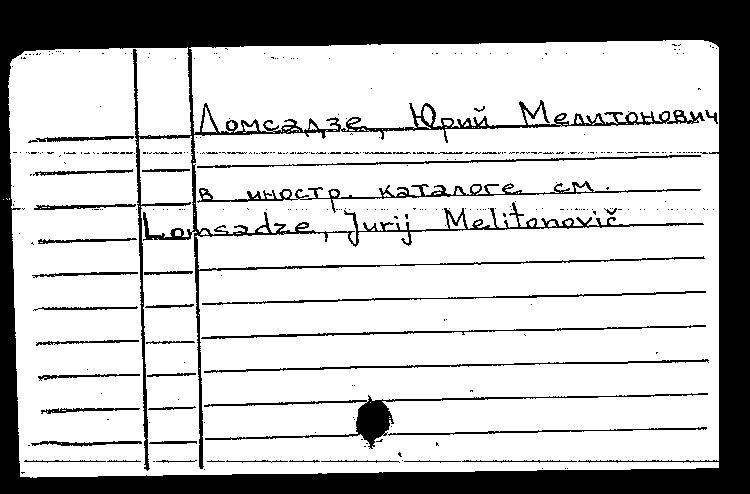 Ломсадзе, Юрий Мелитонович
в иностр. каталоге см.
Lomsadze, Jurij Melitonovič